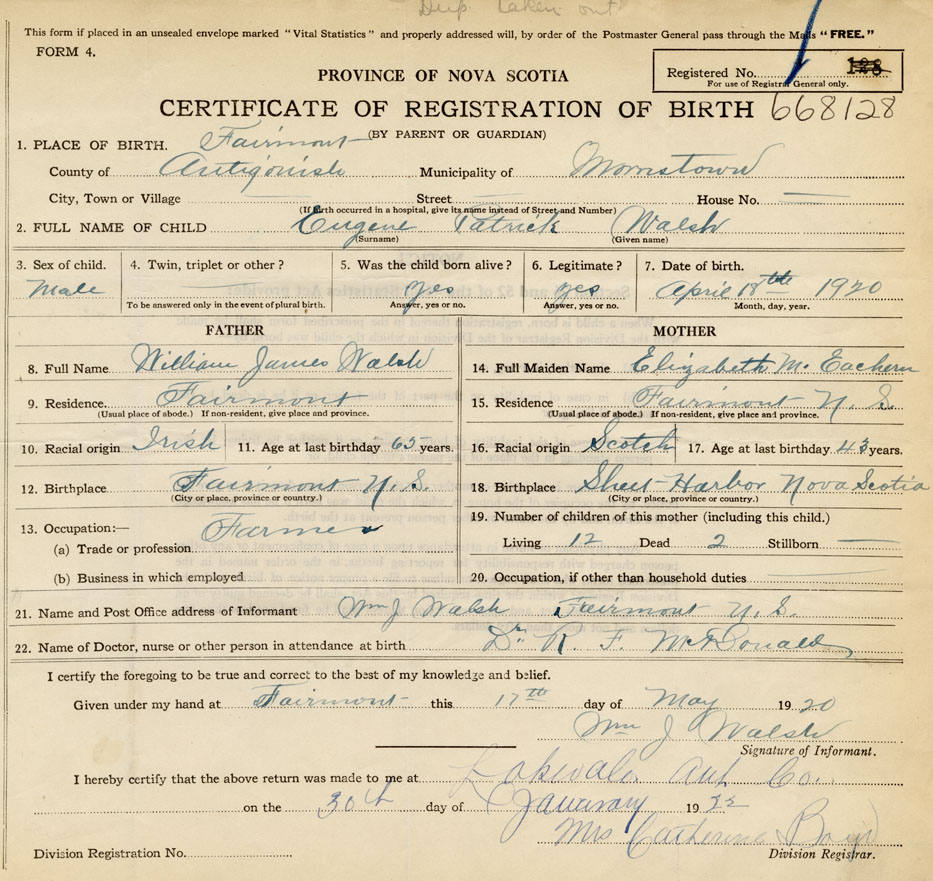 Dup. taken out
This form if placed in an unsealed envelope marked "Vital Statistics" and properly addressed will, by order of the Postmaster General pass through the Mails "FREE."
FORM 4.
Registered No. 128
For use of Registrar General only.
PROVINCE OF NOVA SCOTIA
CERTIFICATE OF REGISTRATION OF BIRTH 668128
(BY PARENT OR GUARDIAN)
1. PLACE OF BIRTH. Fairmont
County of Antigonish Municipality of Morristown
City, Town or Village Street House No.
(If Birth occurred in a hospital, give its name instead of Street and Number)
2. FULL NAME OF CHILD Eugene Patrick Walsh
(Surname) (Given name)
3. Sex of child. 4. Twin, triplet or other? 5. Was the child born alive? 6. Legitimate? 7. Date of birth.
Male Yes yes April 18th 1920
To be answered only in the event of plural birth. Answer, yes or no. Answer, yes or no. Month, day, year.
FATHER
8. Full Name William James Walsh
9. Residence. Fairmont
(Usual place of abode.) If non-resident, give place and province.
10. Racial origin Irish 11. Age at last birthday 65 years.
12. Birthplace Fairmont N.S.
(City or place, province or country.)
13. Occupation:— Farmer
(a) Trade or profession
(b) Business in which employed
MOTHER
14. Full Maiden Name Elizabeth McEachern
15. Residence Fairmont N.S.
(Usual place of abode.) If non-resident, give place and province.
16. Racial origin Scotch 17. Age at last birthday 43 years.
18. Birthplace Sheet Harbor Nova Scotia
(City or place, province or country.)
19. Number of children of this mother (including this child.)
Living 12 Dead 2 Stillborn
20. Occupation, if other than household duties
21. Name and Post Office address of Informant Wm J Walsh Fairmont N.S.
22. Name of Doctor, nurse or other person in attendance at birth Dr. R. F. McDonald
I certify the foregoing to be true and correct to the best of my knowledge and belief.
Given under my hand at Fairmont this 17th day of May 1920
Wm J Walsh
Signature of Informant.
I hereby certify that the above return was made to me at Lakevale Ant Co.
on the 30th day of January 19
Mrs Catherine Boyd
Division Registration No. Division Registrar.